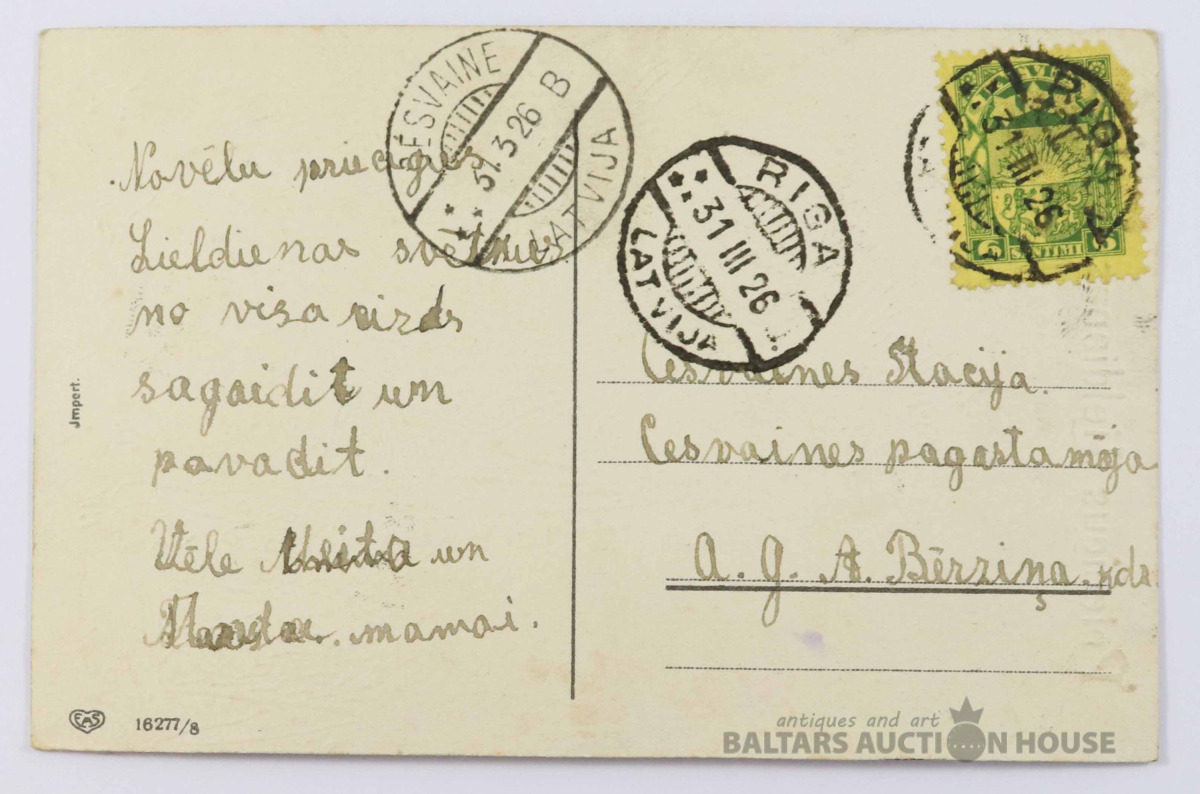 CESVAINE
31.3.26 B
LATVIJA
RIGA
31 III 26
LATVIJA
LATVIJA
RIGA
31 III 26
6 SANTIMI 6
Novēlu priecigus
Lieldienas svētkus
no visa sirds
sagaidit un
pavadit.
Vēle un
mamai.
Cesvaines Stacija.
Cesvaines pagasta māja
A. G. A. Bērziņa. kdz
Jmpert.
EAS
16277/8
antiques and art
BALTARS AUCTION HOUSE